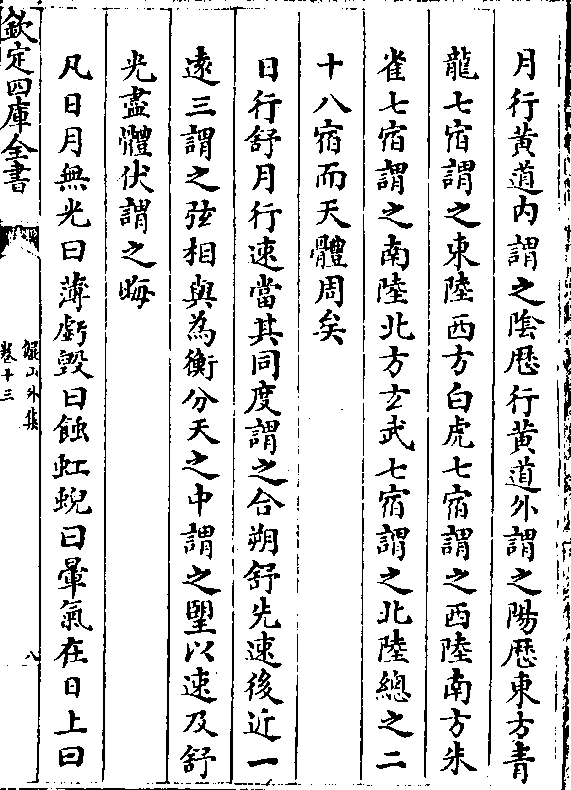 月行黄道内謂之隂厯行黄道外謂之陽厯東方青
龍七宿謂之東陸西方白虎七宿謂之西陸南方朱
雀七宿謂之南陸北方玄武七宿謂之北陸總之二
十八宿而天體周矣
日行舒月行速當其同度謂之合朔舒先速後近一
逺三謂之弦相與為衡分天之中謂之朢以速及舒
光盡體伏謂之晦
凡日月無光曰薄虧毁曰蝕虹蜺曰暈氣在日上曰
欽定四庫全書
儼山外集
卷十三
八